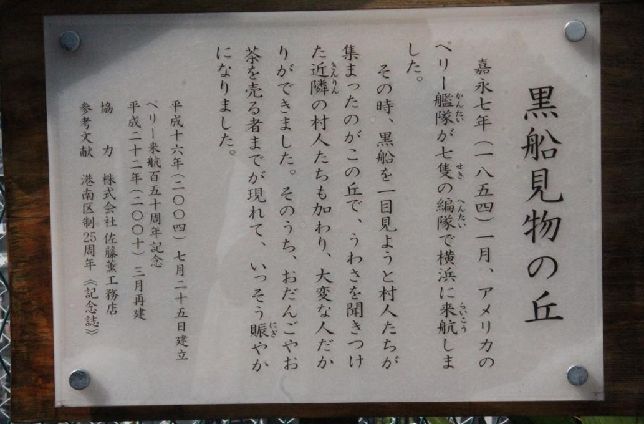 黒船見物の丘
嘉永七年(一八五四)一月、アメリカの
ペリー艦隊が七隻の編隊で横浜に来航しま
した。
その時、黒船を一目見ようと村人たちが
集まったのがこの丘で、うわさを聞きつけ
た近隣の村人たちも加わり、大変な人だか
りができました。そのうち、おだんごやお
茶を売る者までが現れて、いっそう賑やか
になりました。
平成十六年(二〇〇四)七月二十五日建立
ペリー来航百五十周年記念
平成二十二年(二〇〇十)三月再建
協力 株式会社 佐藤薫工務店
参考文献 港南区制25周年《記念誌》